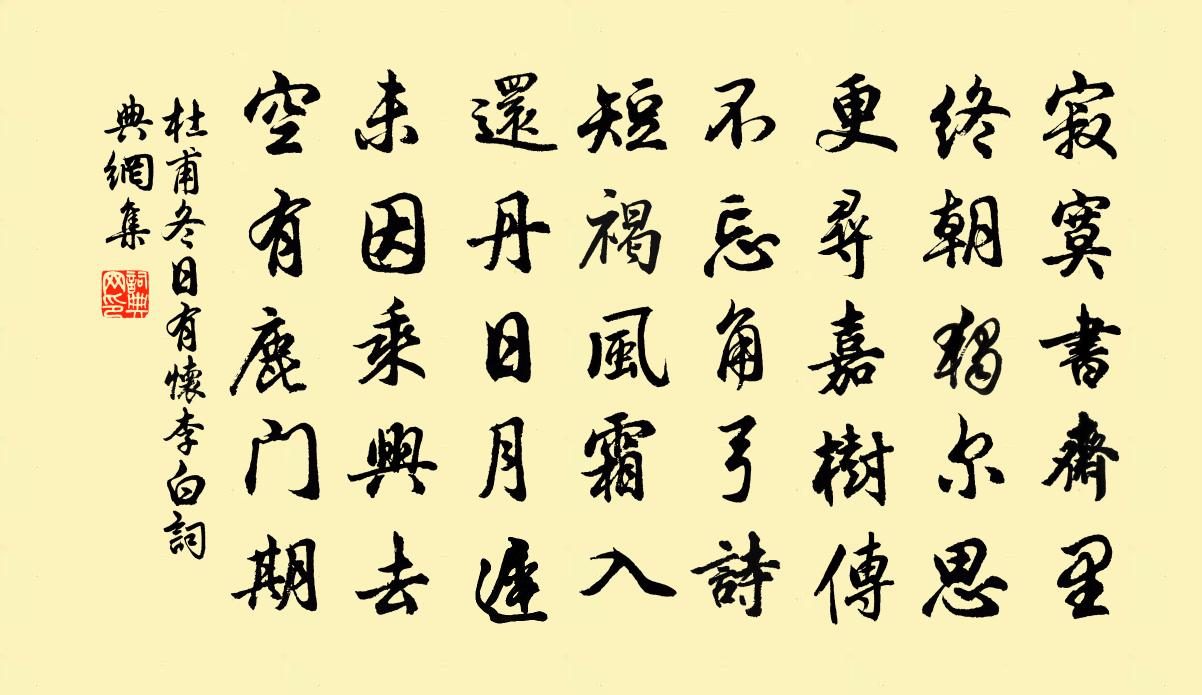 寂寞書齋里
終朝獨尔思
更尋嘉樹傳
不忘角弓詩
短褐風霜入
還丹日月遲
未因乘興去
空有鹿門期
杜甫冬日有懷李白詞
典網集
詞典
网印